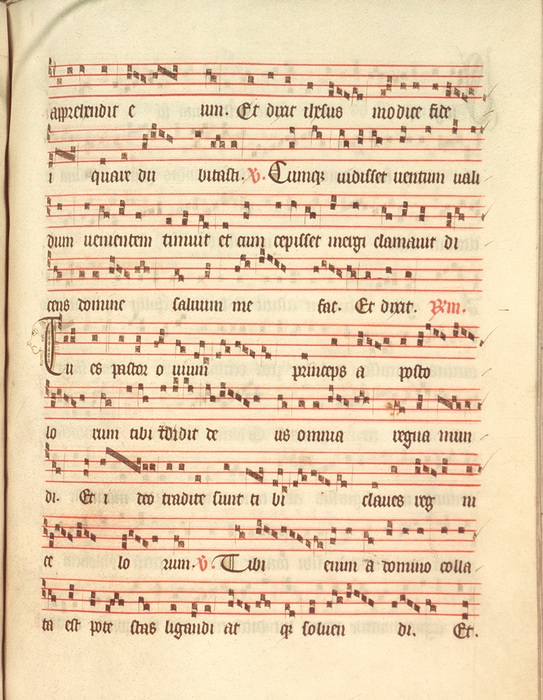 aprehendit e um. Et dixit ihesus modice fide
i quare du bitasti. V. Cumq; uidisset uentum uali
dum uenientem timuit et cum cepisset mergi clamauit di
cens domine saluum me fac. Et dixit. Rm.
Tu es pastor o uium princeps a posto
lo rum tibi tradidit de us omnia regna mun
di. Et i deo tradite sunt ti bi claues reg ni
ce lo rum. V. Tibi enim a domino colla
ta est pote stas ligandi at q; soluen di. Et.